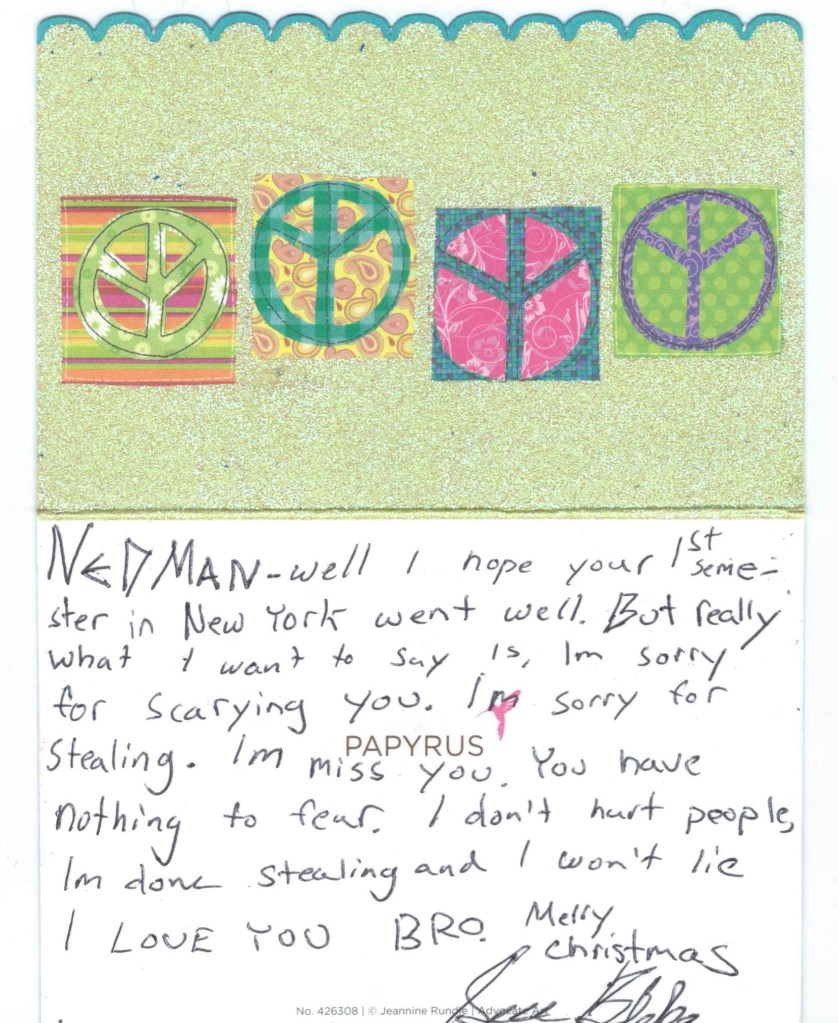 NEDMAN - well I hope your 1st seme-
ster in New York went well. But really
what I want to say is, Im sorry
for scarying you. I'm sorry for
PAPYRUS
Stealing. Im miss you. You have
nothing to fear. I don't hurt people,
Im done stealing and I won't lie
I LOVE YOU BRO. Merry
christmas
No. 426308 | © Jeannine Rundle | Advocate Art